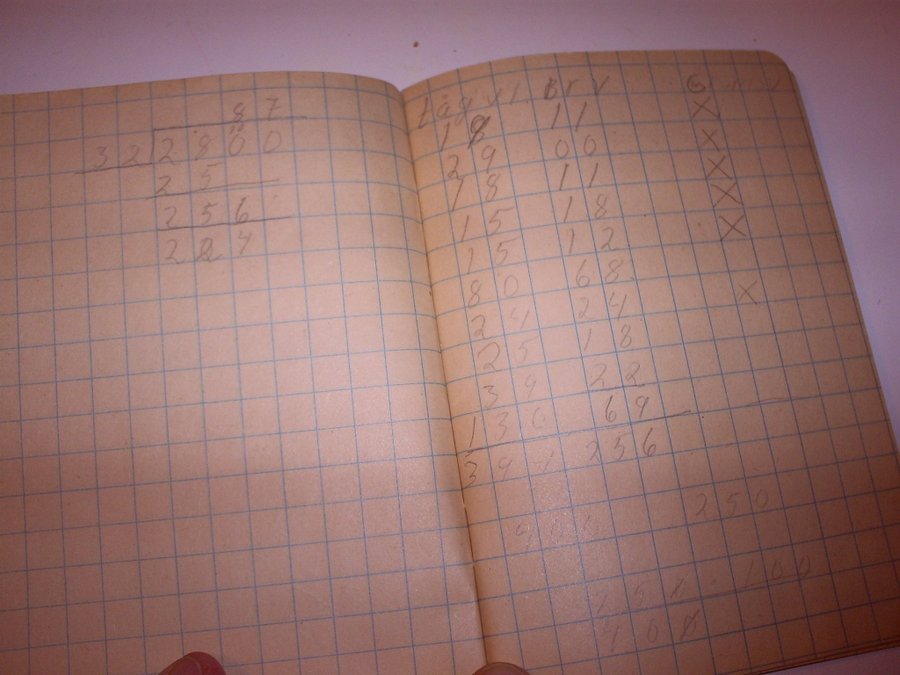 87
32 2800
25
256
224
Lågvt. Brv
18 11
29 00 X
18 11 X
15 18 X
15 12 X
80 68
24 24 X
25 18
39 22
130 69
394 256
250
150 100
400